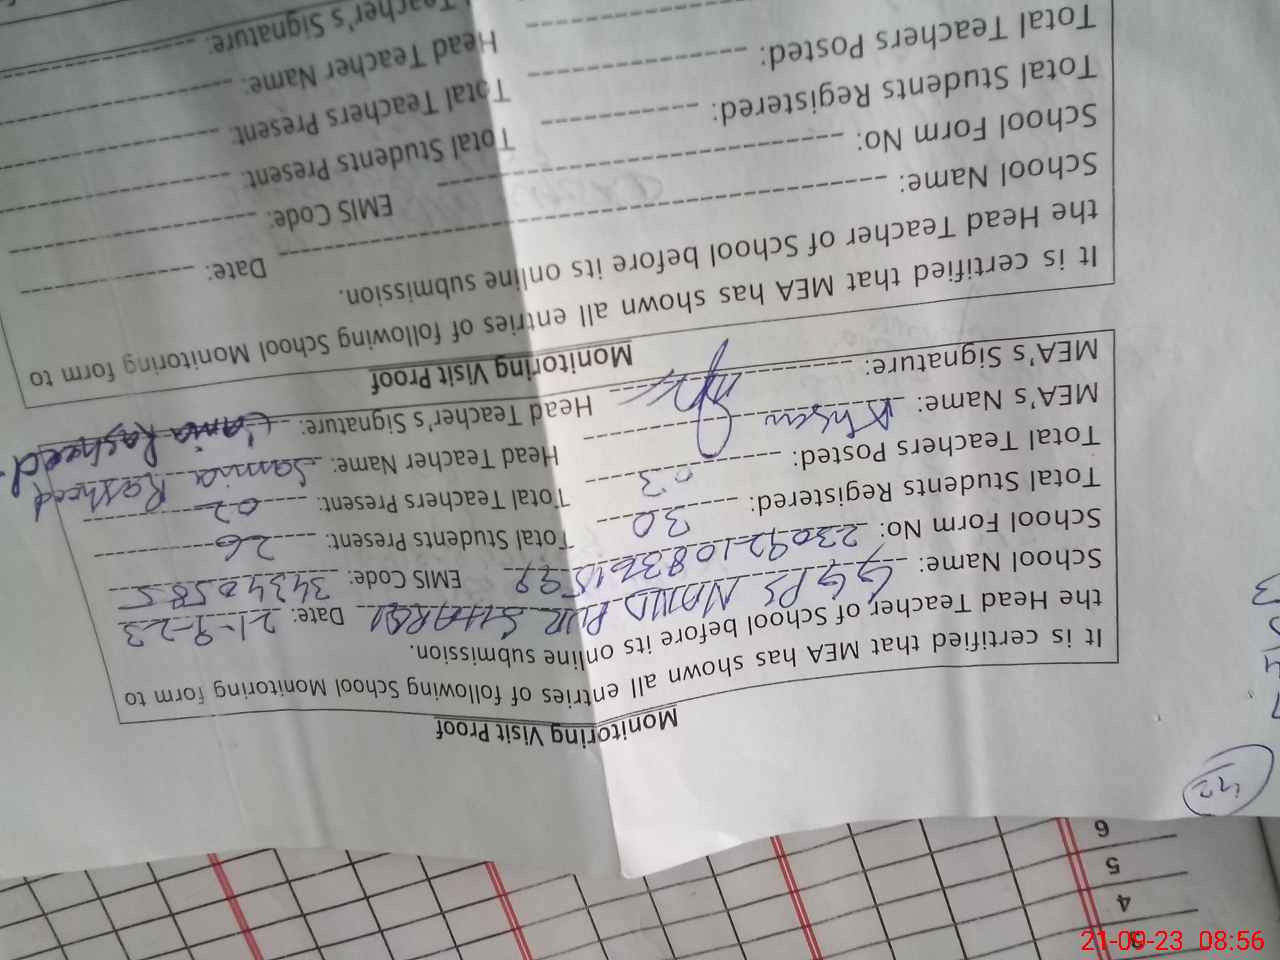 Monitoring Visit Proof
It is certified that MEA has shown all entries of following School Monitoring form to
the Head Teacher of School before its online submission.
School Name: GGPS NAUD PUR SHARQI Date: 21-9-23
School Form No: EMIS Code: 34340585
Total Students Registered: 30 Total Students Present: 26
Total Teachers Posted: 03 Total Teachers Present: 02
MEA's Name: Ahsan Head Teacher Name: Samia Rasheed
MEA's Signature: Head Teacher's Signature: Samia Rasheed
Monitoring Visit Proof
It is certified that MEA has shown all entries of following School Monitoring form to
the Head Teacher of School before its online submission.
School Name: Date:
School Form No: EMIS Code:
Total Students Registered: Total Students Present:
Total Teachers Posted: Total Teachers Present:
Head Teacher Name:
Teacher's Signature:
6
5
4
21-09-23 08:56